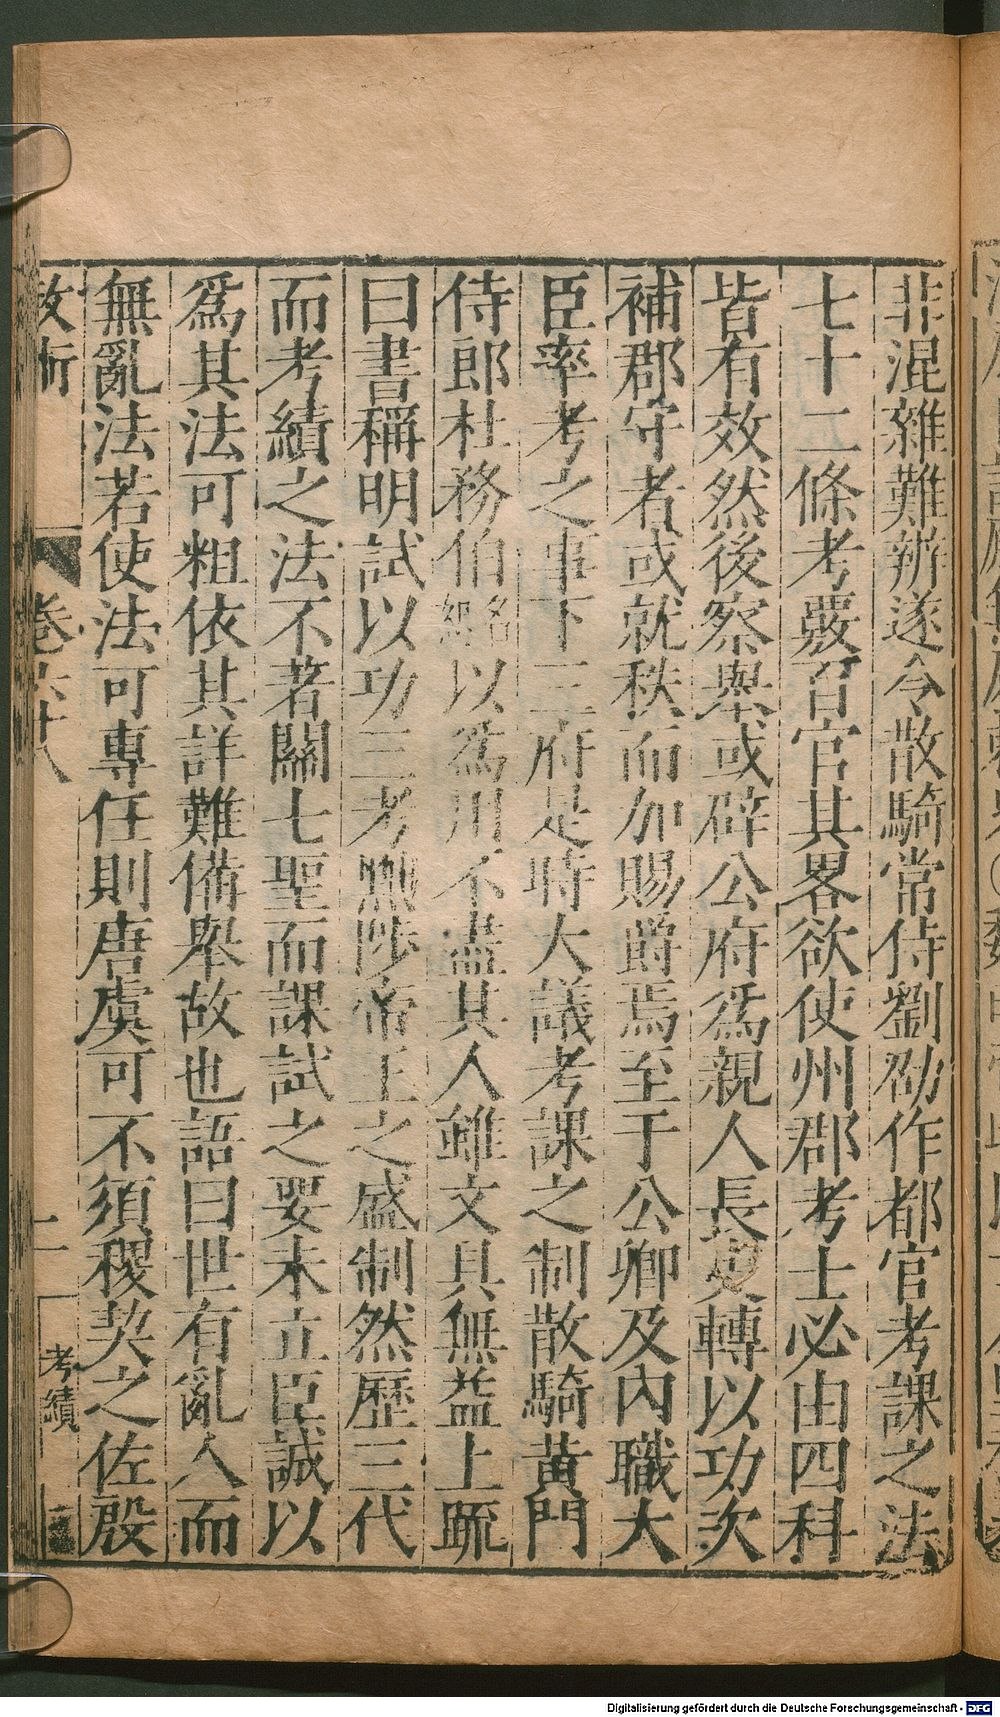 非混雜難辨遂令散騎常侍劉劭作都官考課之法
七十二條考覈百官其畧欲使州郡考士必由四科
皆有效然後察舉或辟公府爲親人長吏轉以功次
補郡守者或就秩而加賜爵焉至于公卿及內職大
臣率考之事下三府是時大議考課之制散騎黃門
侍郎杜務伯名恕以爲用不盡其人雖文具無益上疏
曰書稱明試以功三考黜陟帝王之盛制然歷三代
而考績之法不著關七聖而課試之要未立臣誠以
爲其法可粗依其詳難備舉故也語曰世有亂人而
無亂法若使法可專任則唐虞可不須稷契之佐殷
卷六十八
二
考績
Digitalisierung gefördert durch die Deutsche Forschungsgemeinschaft - DFG